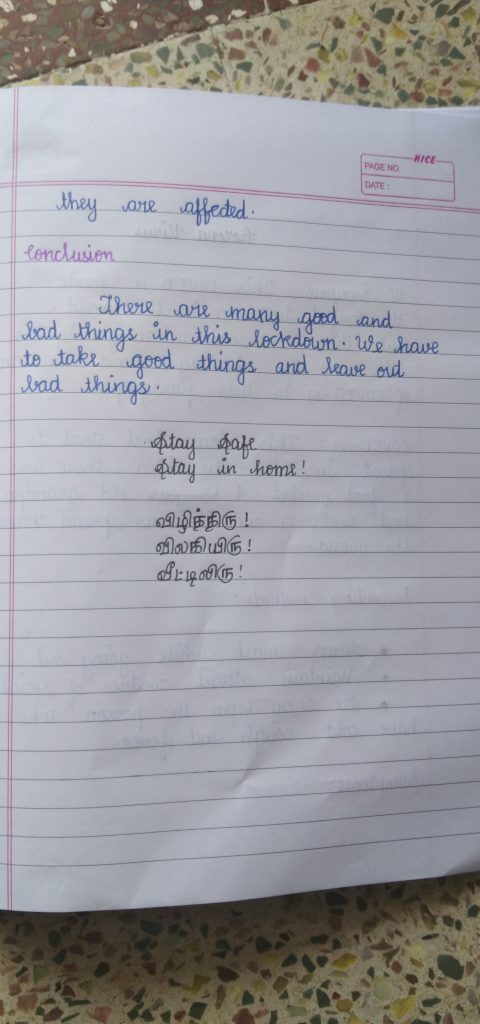 NICE
PAGE NO.
DATE :
they are affected.
Conclusion
There are many good and
bad things in this lockdown. We have
to take good things and leave oid
bad things.
Stay Safe
Stay in home!
விழித்திரு!
விலகியிரு!
வீட்டிலிரு!